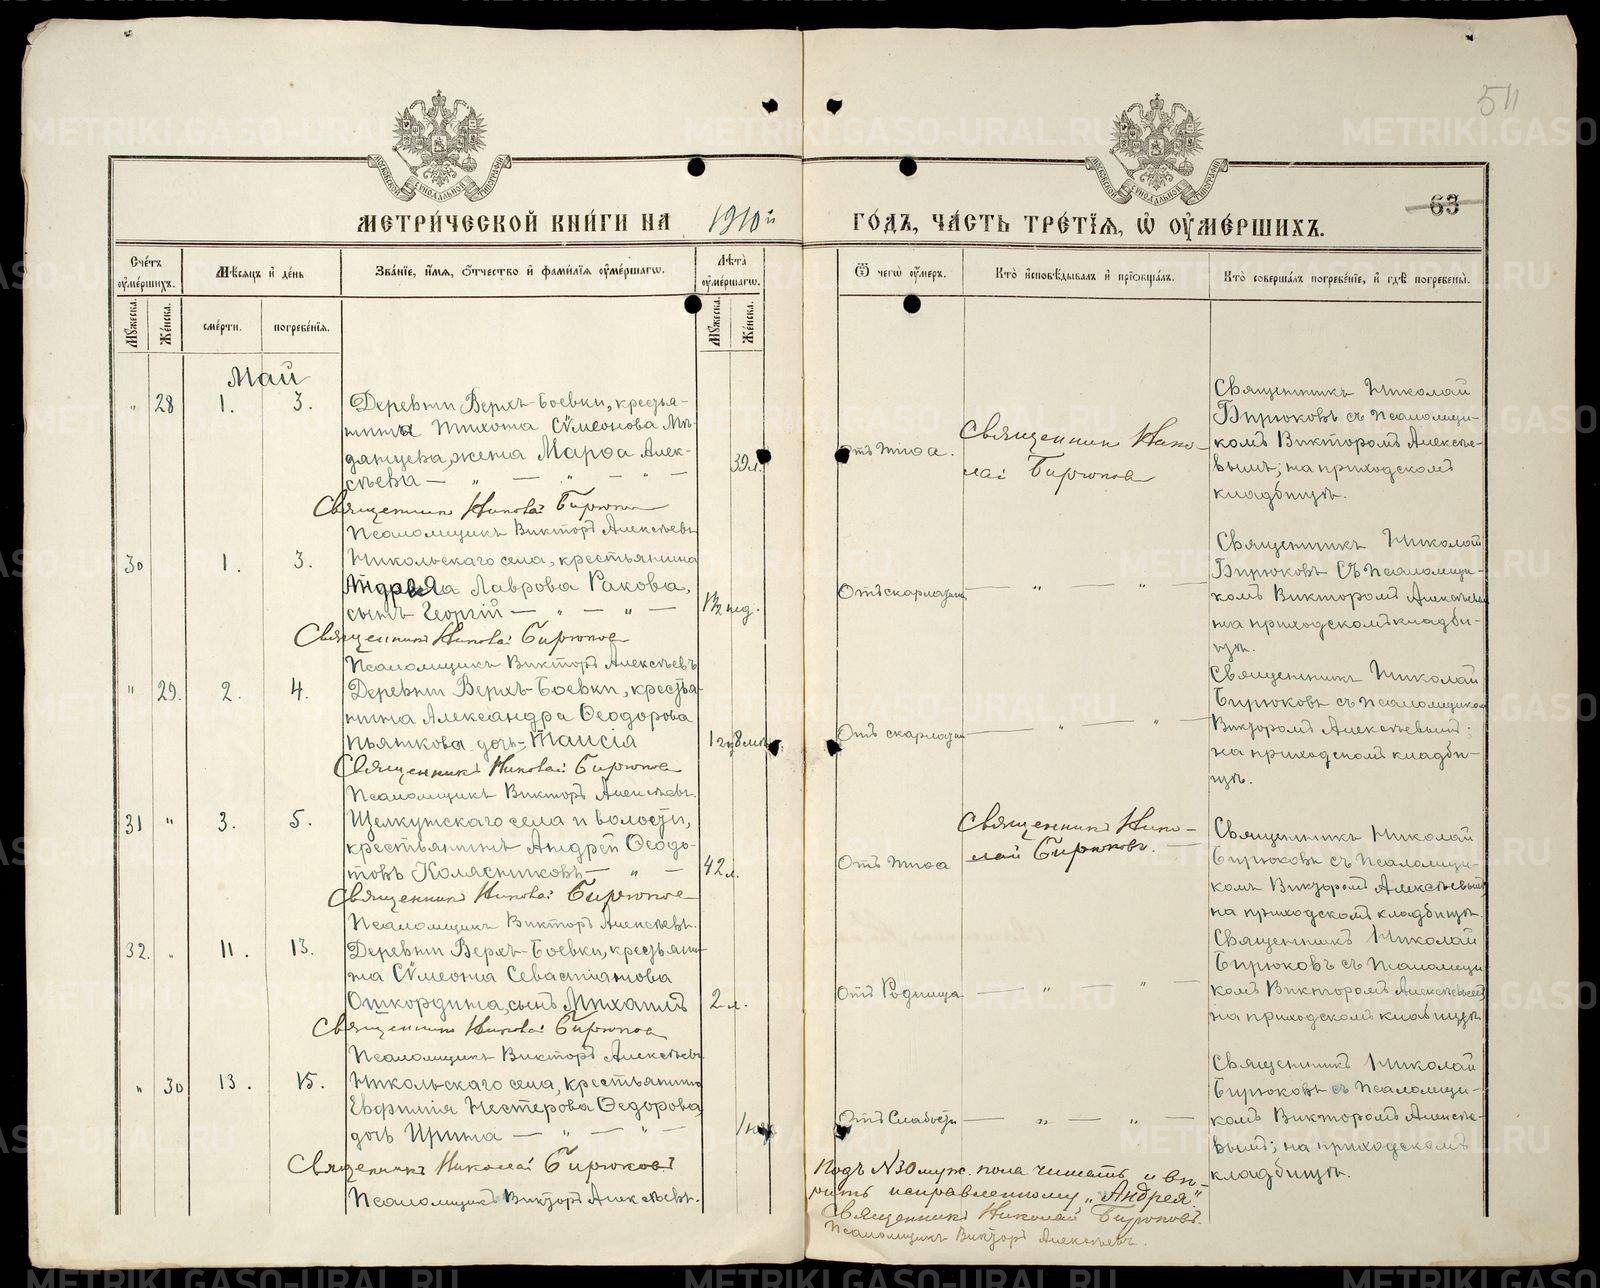 511
63
МОСКОВСКОЙ СѴНОДАЛЬНОЙ ТИПОГРАФІИ
МОСКОВСКОЙ СѴНОДАЛЬНОЙ ТИПОГРАФІИ
МЕТРИ́ЧЕСКОЙ КНИ́ГИ НА 1910й ГО́ДЪ, ЧА́СТЬ ТРЕ́ТІѦ, Ѡ҆ ОУ҆МЕ́РШИХЪ.
Сче́тъ оу҆ме́ршихъ.
Мѣ́сяцъ и҆ де́нь
Зва́нїе, и҆́мя, ѻ҆́тчество и҆ фами́лїя оу҆ме́ршагѡ.
Лѣ́та оу҆ме́ршагѡ.
Ѿ чегѡ̀ оу҆́меръ.
Кто̀ и҆сповѣ́дывалъ и҆ прїѡбща́лъ.
Кто̀ соверша́лъ погребе́нїе, и҆ гдѣ̀ погребены̀.
Му́жеска. Же́нска. сме́рти. погребе́нїя. Му́жеска. Же́нска.
Май
" 28 1. 3. Деревни Верхъ-Боевки, крестья-
нина Тихона Сѵмеонова Мѣ-
дянцева, жена Марѳа Алек-
сѣева — " — " — " — 39 л.
Священник Николай Бирюков
Псаломщикъ Викторъ Алексѣевъ
Отъ тифа.
Священник Нико-
лай Бирюков
Священникъ Николай
Бирюковъ съ псаломщи-
комъ Викторомъ Алексѣе-
вымъ; на приходскомъ
кладбищѣ.
30 1. 3. Никольскаго села, крестьянина
Андрея Лаврова Ракова,
сынъ Георгій — " — " — 1½ нед.
Священникъ Николай Бирюков
Псаломщикъ Викторъ Алексѣевъ
Отъ скарлатин — " — " —
Священникъ Николай
Бирюковъ съ псаломщи-
комъ Викторомъ Алексѣевым
на приходскомъ кладби-
щѣ.
" 29. 2. 4. Деревни Верхъ-Боевки, крестья-
нина Александра Ѳеодорова
Пьянкова дочь-Таисія 1 г. 8 м.
Священникъ Николай Бирюков
Псаломщикъ Викторъ Алексѣевъ.
Отъ скарлатин — " — " —
Священникъ Николай
Бирюковъ съ псаломщиком
Викторомъ Алексѣевымъ;
на приходскомъ кладби-
щѣ.
31 " 3. 5. Щелкунскаго села и волости,
крестьянинъ Андрей Ѳеодо-
товъ Колясниковъ — " — 42 л.
Священникъ Николай Бирюков
Псаломщикъ Викторъ Алексѣевъ.
Отъ тифа
Священникъ Нико-
лай Бирюковъ. —
Священникъ Николай
Бирюковъ съ псаломщи-
комъ Викторомъ Алексѣевымъ
на приходскомъ кладбищѣ.
32. " 11. 13. Деревни Верхъ-Боевки, крестьяни-
на Сѵмеона Севастіанова
Откордина, сынъ Михаилъ 2 л.
Священникъ Николай Бирюков
Псаломщикъ Викторъ Алексѣевъ
Отъ Родимца — " — " —
Священникъ Николай
Бирюковъ съ псаломщи-
комъ Викторомъ Алексѣевымъ
на приходскомъ кладбищѣ
" 30 13. 15. Никольскаго села, крестьянина
Евфимія Нестерова Ѳедорова,
дочь Ирина — " — " — 1 нед.
Священникъ Николай Бирюковъ
Псаломщикъ Викторъ Алексѣевъ.
Отъ Слабости — " — " —
Священникъ Николай
Бирюковъ съ псаломщи-
комъ Викторомъ Алексѣе-
вымъ; на приходскомъ
кладбищѣ.
Подъ №30 муж. пола читать и вѣ-
рить исправленному „Андрея"
Священникъ Николай Бирюковъ.
Псаломщикъ Викторъ Алексѣевъ.
METRIKI.GASO-URAL.RU